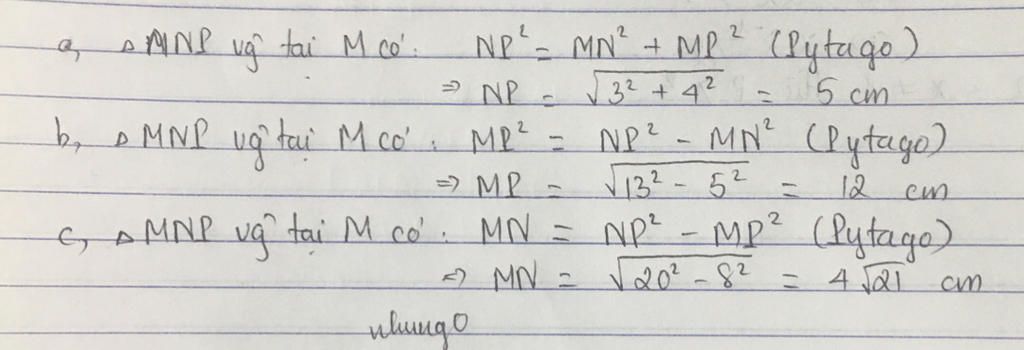 a, △MNP vg̃ tại M có: NP² = MN² + MP² (Pytago)
⇒ NP = √3² + 4² = 5 cm
b, △MNP vg̃ tại M có: MP² = NP² - MN² (Pytago)
⇒ MP = √13² - 5² = 12 cm
c, △MNP vg̃ tại M có: MN = NP² - MP² (Pytago)
⇒ MN = √20² - 8² = 4√21 cm
nhung0